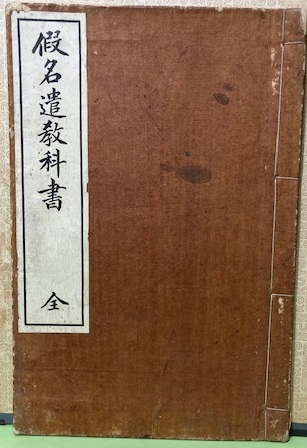 假名遣教科書 全